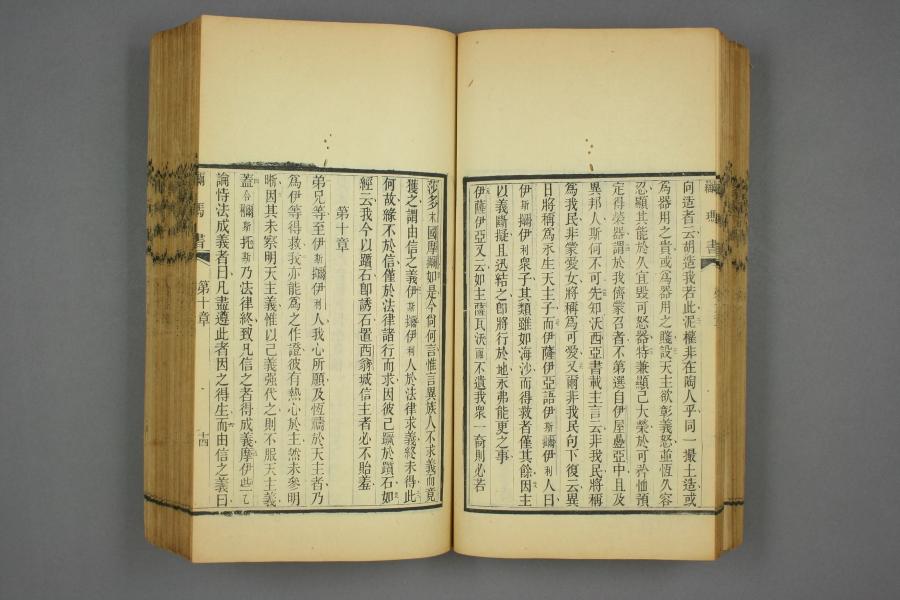 向造者云胡造我若此泥權非在陶人乎同一撮土造或
為器用之貴或為器用之賤設天主欲彰義怒並恆久容
忍顯其能於久宜毀可怒器特兼顯己大榮於可矜恤預
定得榮器謂於我儕蒙召者不第選自伊屋疊亞中且及
異邦人斯何不可先知沃西亞書載主言云非我民將稱
為我民非蒙愛女將稱為可愛又爾非我民向下復云異
日將稱為永生天主子而伊薩伊亞語伊斯擩伊利人曰
伊斯擩伊利衆子其類雖如海沙而得救者僅其餘因主
以義斷擬且迅結之卽將行於地永弗能更之事
伊薩伊亞又云如主薩瓦沃爾不遺我衆一裔則必若
莎多木國摩擩如是今尙何言惟言異族人不求義而竟
獲之謂由信之義伊斯擩伊利人於法律求義終未得此
何故緣不於信僅於法律諸行而求因彼己蹶於躓石如
經云我今以躓石卽誘石置西翁城信主者必不貽羞
第十章
弟兄等至伊斯擩伊利人我心所願及恆禱於天主者乃
為伊等得救我亦能為之作證彼有熱心於主然未參明
晰因其未察明天主義惟以己義強代之則不服天主義
蓋合擩斯托斯乃法律終致凡信之者得成義摩伊些乙
論恃法成義者曰凡盡遵此者因之得生而由信之義曰
擩馬書
第十章
十四